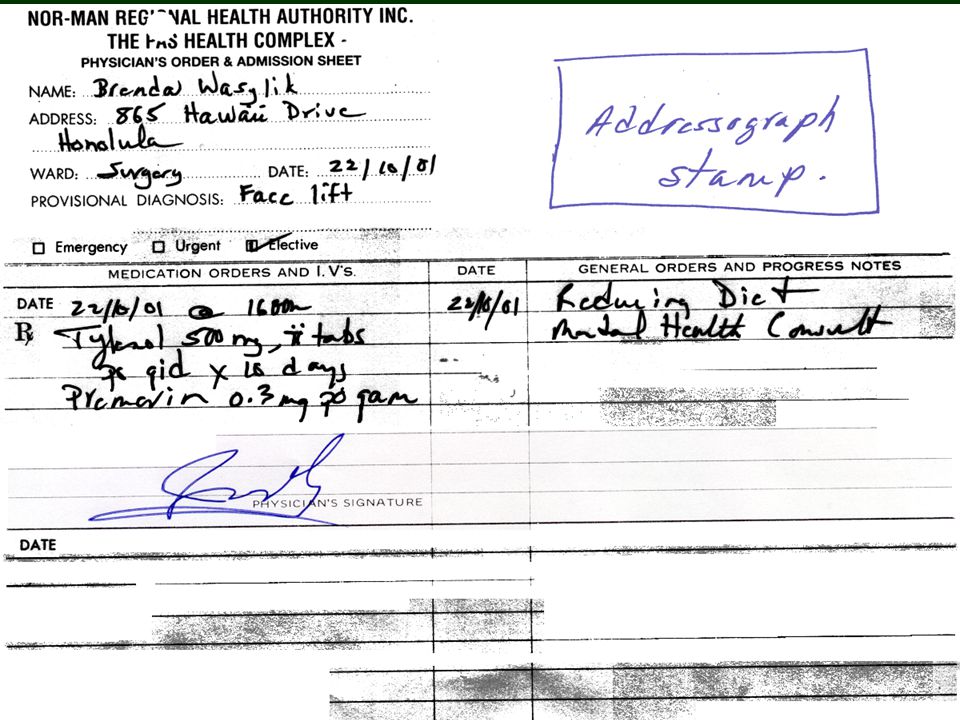 NOR-MAN REGIONAL HEALTH AUTHORITY INC.
THE PAS HEALTH COMPLEX -
PHYSICIAN'S ORDER & ADMISSION SHEET
NAME: Brenda Wasylik
ADDRESS: 865 Hawaii Drive
Honolula
WARD: Surgery DATE: 22/10/01
PROVISIONAL DIAGNOSIS: Face lift
Emergency Urgent Elective
Addressograph
stamp.
MEDICATION ORDERS AND I.V's. DATE GENERAL ORDERS AND PROGRESS NOTES
DATE 22/10/01 @ 1600h 22/10/01 Reducing Diet
Rx Tylenol 500 mg, ii tabs Mental Health Consult
po qid x 10 days
Premarin 0.3 mg po qam
PHYSICIAN'S SIGNATURE
DATE